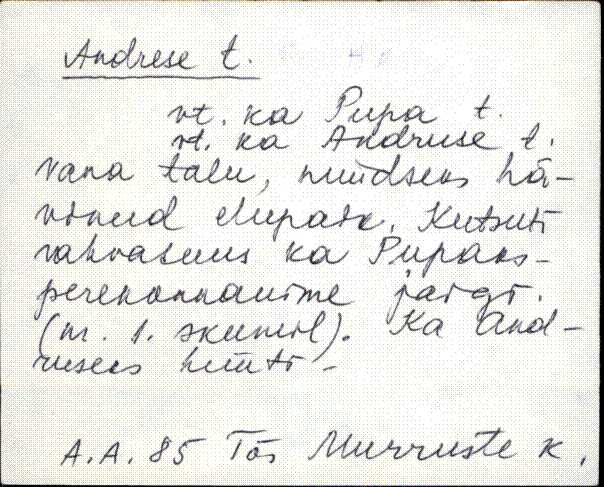 Andrese t.
vt. ka Pupa t.
vt. ka Andruse t.
Vana talu, nüüdseks hä-
vinud elupaik. Kutsuti
rahvasuus ka Pupaks-
perekonnanime järgi.
(nr. 1. skeemil). Ka And-
ruseks hüüti -
A.A. 85 Tõs Murruste k.